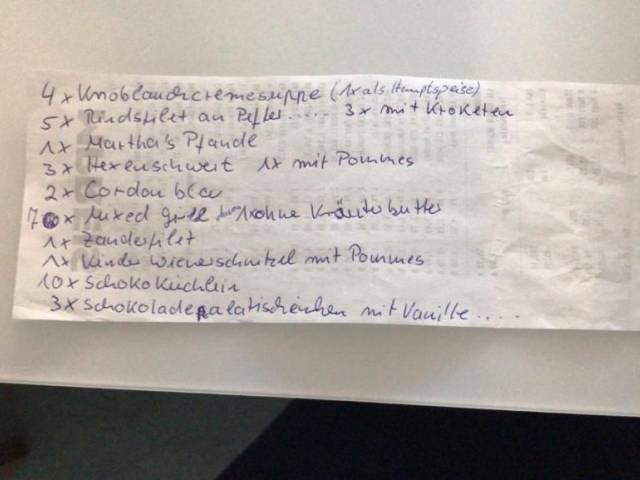 4 x Knoblauchcremesuppe (1x als Hauptspeise)
5 x Rindsfilet an Pfeffer..... 3x mit Kroketen
1x Martha's Pfandle
3 x Hexenschwert 1x mit Pommes
2x Cordon bleu
7 x Mixed grill 1x ohne Kräuterbutter
1x Zanderfilet
1x Kinder Wienerschnitzel mit Pommes
10x Schoko Küchlein
3x Schokolade mit Vanille.....